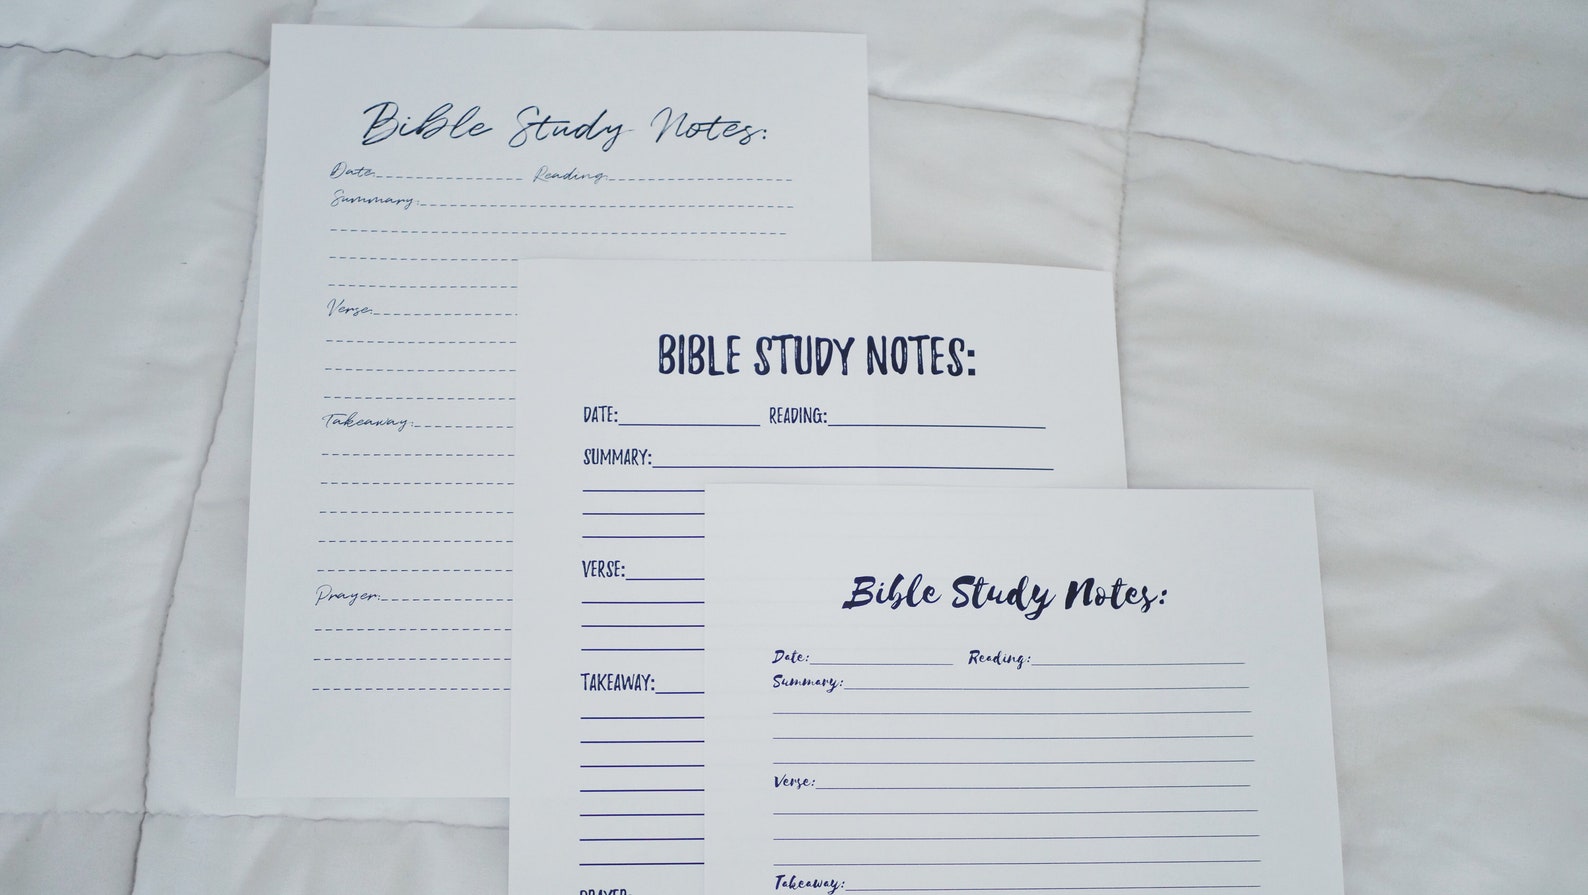 Bible Study Notes:
Date: Reading:
Summary:
Verse:
Takeaway:
Prayer:
BIBLE STUDY NOTES:
DATE: READING:
SUMMARY:
VERSE:
TAKEAWAY:
PRAYER:
Bible Study Notes:
Date: Reading:
Summary:
Verse:
Takeaway: